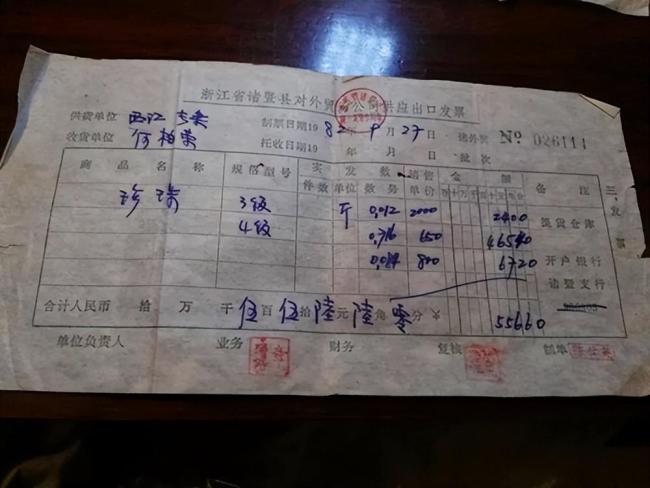 浙江省诸暨县对外贸 公司供应出口发票
供货单位 西江
制票日期19 82 年 9 月 27 日
诸外贸 № 026114
收货单位 何柏荣
托收日期19 年 月 日 批次
商品名称 规格型号 实发数 销售 金额 备注
件数 单位 数量 单价
珍珠 3级 斤 0.012 2000 2400
提货仓库
4级 0.716 650 46540
0.084 800 6720
开户银行
诸暨支行
合计人民币 拾 万 千 伍百 伍拾 陆元 陆角 零分 ¥ 55660
单位负责人 业务 财务 复核 制单
三、发票